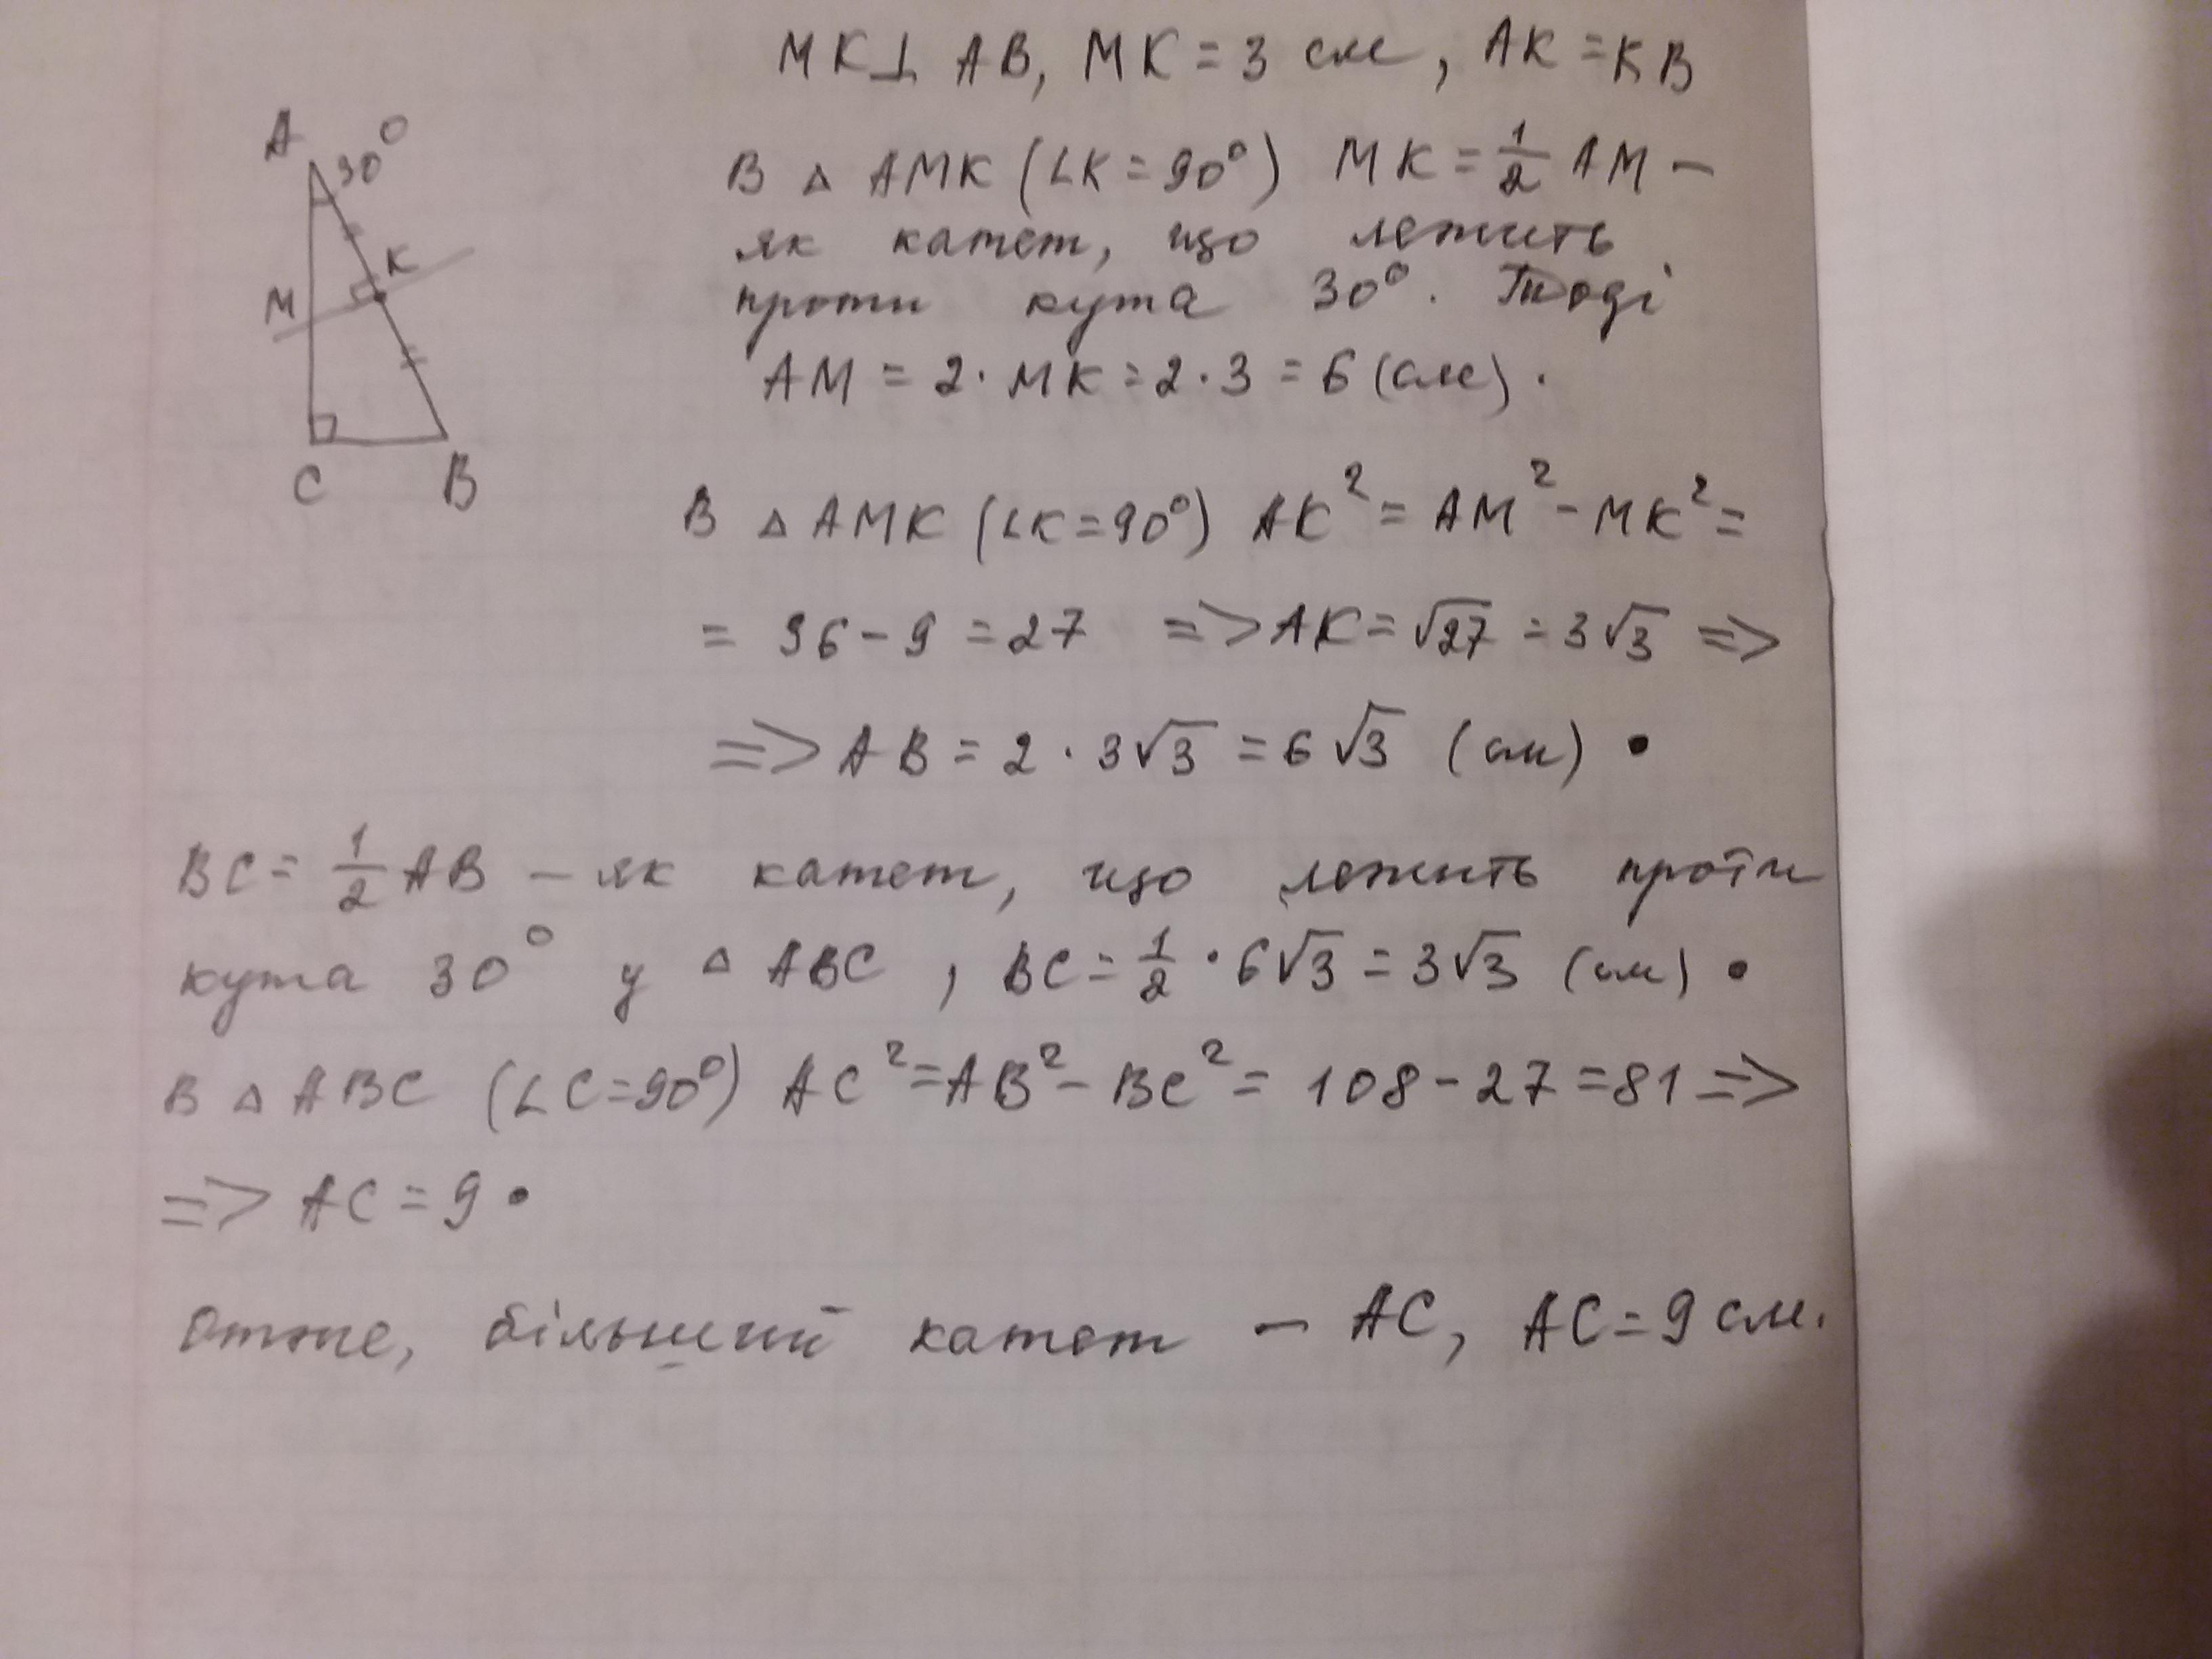 MK⊥AB, MK = 3 см, AK = KB
A 30°
K
M
C B
В △ AMK (∠K = 90°) MK = 1/2 AM –
як катет, що лежить
проти кута 30°. Тоді
AM = 2 · MK = 2 · 3 = 6 (см).
В △ AMK (∠K = 90°) AK² = AM² – MK² =
= 36 – 9 = 27 => AK = √27 = 3√3 =>
=> AB = 2 · 3√3 = 6√3 (см).
BC = 1/2 AB – як катет, що лежить проти
кута 30° у △ ABC, BC = 1/2 · 6√3 = 3√3 (см).
В △ ABC (∠C = 90°) AC² = AB² – BC² = 108 – 27 = 81 =>
=> AC = 9.
Отже, більший катет – AC, AC = 9 см.